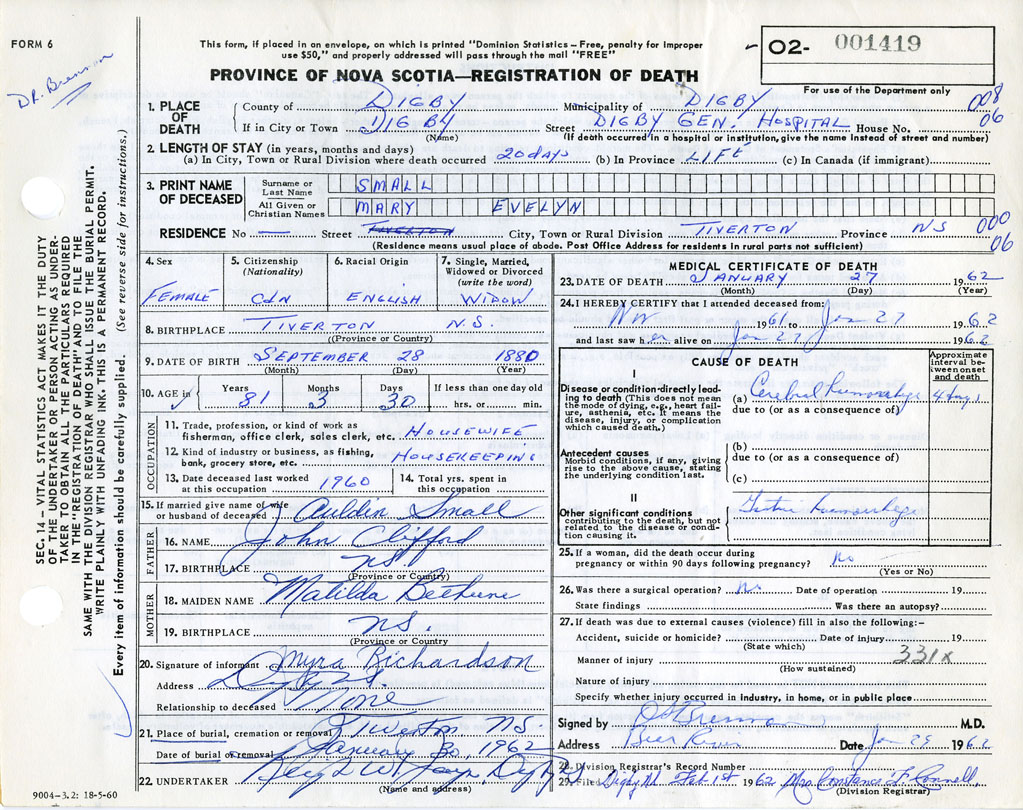 FORM 6
DR. Brennan
This form, if placed in an envelope, on which is printed "Dominion Statistics – Free, penalty for improper
use $50," and properly addressed will pass through the mail "FREE"
PROVINCE OF NOVA SCOTIA—REGISTRATION OF DEATH
O2- 001419
For use of the Department only
008
06
1. PLACE OF DEATH
County of DIGBY Municipality of DIGBY
If in City or Town DIGBY (Name) Street DIGBY GEN. HOSPITAL House No.
(If death occurred in a hospital or institution, give the name instead of street and number)
2. LENGTH OF STAY (in years, months and days)
(a) In City, Town or Rural Division where death occurred 20 days (b) In Province LIFE (c) In Canada (if immigrant)
3. PRINT NAME OF DECEASED
Surname or Last Name SMALL
All Given or Christian Names MARY EVELYN
RESIDENCE No — Street TIVERTON City, Town or Rural Division TIVERTON Province NS
000
06
(Residence means usual place of abode. Post Office Address for residents in rural parts not sufficient)
4. Sex FEMALE
5. Citizenship (Nationality) CDN
6. Racial Origin ENGLISH
7. Single, Married, Widowed or Divorced (write the word) WIDOW
8. BIRTHPLACE TIVERTON N.S.
(Province or Country)
9. DATE OF BIRTH SEPTEMBER 28 1880
(Month) (Day) (Year)
10. AGE in Years 81 Months 3 Days 30 If less than one day old hrs. or min.
OCCUPATION
11. Trade, profession, or kind of work as fisherman, office clerk, sales clerk, etc. HOUSEWIFE
12. Kind of industry or business, as fishing, bank, grocery store, etc. HOUSEKEEPING
13. Date deceased last worked at this occupation 1960
14. Total yrs. spent in this occupation
15. If married give name of wife or husband of deceased Auldin Small
FATHER
16. NAME John Clifford
17. BIRTHPLACE NS.
(Province or Country)
MOTHER
18. MAIDEN NAME Matilda Bethune
19. BIRTHPLACE NS.
(Province or Country
20. Signature of informant Myra Richardson
Address Digby NS.
Relationship to deceased None
21. Place of burial, cremation or removal Tiverton NS.
Date of burial or removal January 30, 1962
22. UNDERTAKER Digby
(Name and address)
MEDICAL CERTIFICATE OF DEATH
23. DATE OF DEATH JANUARY 27 1962
(Month) (Day) (Year)
24. I HEREBY CERTIFY that I attended deceased from:
Nov 1961 to Jan 27 1962
and last saw her alive on Jan 27 1962
CAUSE OF DEATH
Approximate interval between onset and death
I
Disease or condition directly leading to death (This does not mean the mode of dying, e.g., heart failure, asthenia, etc. It means the disease, injury, or complication which caused death.)
(a) Cerebral Hemorrhage 4 days
due to (or as a consequence of)
Antecedent causes
Morbid conditions, if any, giving rise to the above cause, stating the underlying condition last.
(b)
due to (or as a consequence of)
(c)
II
Other significant conditions contributing to the death, but not related to the disease or condition causing it.
haemorrhage
25. If a woman, did the death occur during pregnancy or within 90 days following pregnancy? No
(Yes or No)
26. Was there a surgical operation? No. Date of operation 19
State findings Was there an autopsy?
27. If death was due to external causes (violence) fill in also the following:-
Accident, suicide or homicide? Date of injury 19
(State which)
331x
Manner of injury
(How sustained)
Nature of injury
Specify whether injury occurred in industry, in home, or in public place
Signed by Brennan M.D.
Address Bear River Date Jan 29 1962
28. Division Registrar's Record Number
29. Filed Digby NS Feb 1st 1962 Mrs Constance F Connell,
(Division Registrar)
SEC. 14 – VITAL STATISTICS ACT MAKES IT THE DUTY
OF THE UNDERTAKER OR PERSON ACTING AS UNDER-
TAKER TO OBTAIN ALL THE PARTICULARS REQUIRED
IN THE "REGISTRATION OF DEATH" AND TO FILE THE
SAME WITH THE DIVISION REGISTRAR WHO SHALL ISSUE THE BURIAL PERMIT.
WRITE PLAINLY WITH UNFADING INK. THIS IS A PERMANENT RECORD.
Every item of information should be carefully supplied. (See reverse side for instructions.)
9004-3.2: 18-5-60